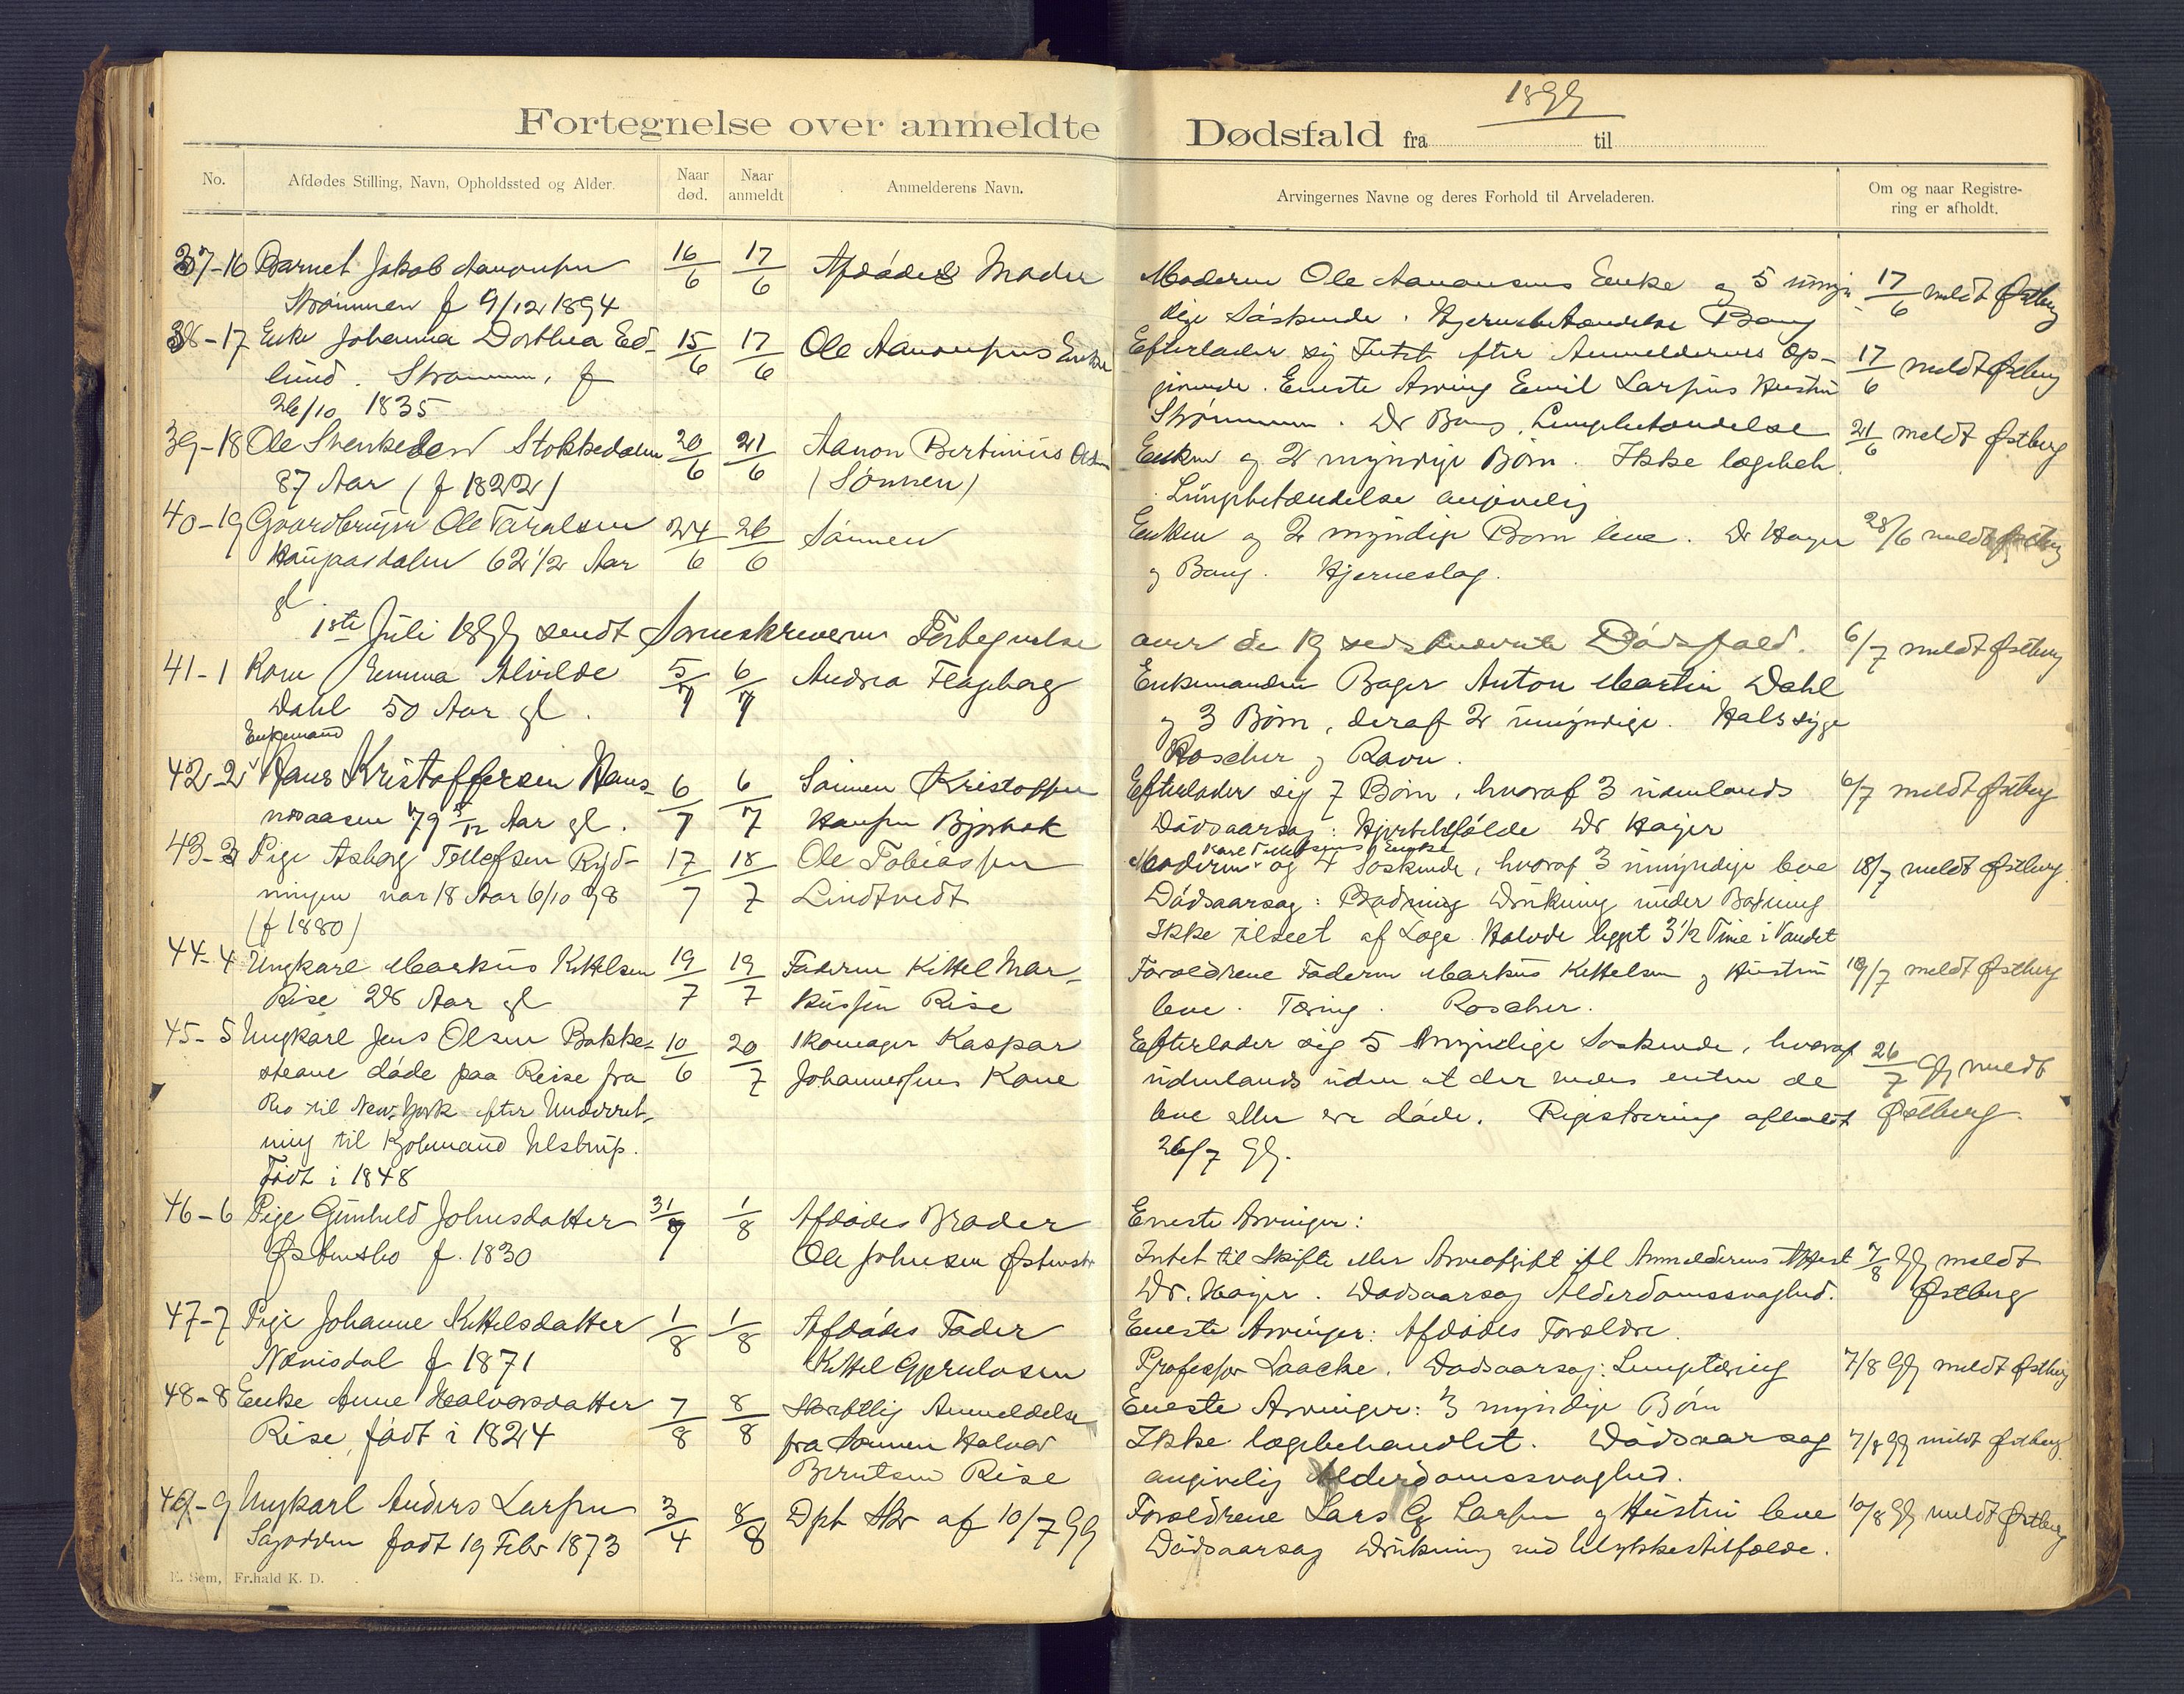 1899
Fortegnelse over anmeldte Dødsfald fra til
No.
Afdødes Stilling, Navn, Opholdssted og Alder.
Naar død.
Naar anmeldt
Anmelderens Navn.
Arvingernes Navne og deres Forhold til Arveladeren.
Om og naar Registrering er afholdt.
37-16 Barnet Jakob Aanonsen 16/6 17/6 Afdødes Moder
Strømmen f 9/12 1894
Moderen Ole Aanonsens Enke og 5 umyn- 17/6 meldt Østberg
dige Søskende. Hjernebetændelse Bang
38-17 Enke Johanna Dorthea Ed- 15/6 17/6 Ole Aanonsens Enke
lund. Strømmen, f
26/10 1835
Efterlader sig Intet efter Anmelderens Op- 17/6 meldt Østberg
givende. Eneste Arving Emil Larsens Hustru
Strømmen. Dr Bang. Lungebetændelse
39-18 Ole Svenkesen Stokkedalen 20/6 21/6 Aanon Bertinius Olsen
87 Aar (f 1822) (Sønnen)
Enken og 2 myndige Børn. Ikke lægebeh. 21/6 meldt Østberg
Lungebetændelse angivelig
40-19 Gaardbruger Ole Taralsen 24/6 26/6 Sønnen
Haugaasdalen 62 1/2 Aar
gl
Enken og 2 myndige Børn leve. Dr Høyer 28/6 meldt Østberg
og Bang. Hjerneslag.
1ste Juli 1899 sendt Sorenskriveren Fortegnelse
over de 19 sidstnævnte Dødsfald.
41-1 Kone Emma Alvilde 5/7 6/7 Andrea Flageborg
Dahl 50 Aar gl.
Enkemanden Bager Anton Martin Dahl 6/7 meldt Østberg
og 3 Børn, deraf 2 umyndige. Halssyge
Roscher og Ravn.
Enkemand
42-2 Hans Kristoffersen Hans- 6/7 6/7 Sønnen Kristoffer
nesaasen 79 5/12 Aar gl. Hansen Bjorbæk
Efterlader sig 7 Børn, hvoraf 3 udenlands 6/7 meldt Østberg
Dødsaarsag: Hjertetilfælde Dr Høyer
43-3 Pige Asborg Tellefsen Ryd- 17/7 18/7 Ole Tobiassen
ningen var 18 Aar 6/10 98 Lindtvedt
(f 1880)
Karl Tellefsens Enke
Moderen og 4 Søskende, hvoraf 3 umyndige leve 18/7 meldt Østberg.
Dødsaarsag: Badning Drukning under Badning
Ikke tilseet af Læge. Havde ligget 3 1/2 Time i Vandet
44-4 Ungkarl Markus Kittelsen 19/7 19/7 Faderen Kittel Mar-
Rise 28 Aar gl kussen Rise
Forældrene Faderen Markus Kittelsen og Hustru 19/7 meldt Østberg
leve. Tæring. Roscher.
45-5 Ungkarl Jens Olsen Bakke- 10/6 20/7 Skomager Kaspar
steane døde paa Reise fra Johannessens Kone
Rio til New-York efter Underret-
ning til Kjøbmand Ulstrup.
Født i 1848
Efterlader sig 5 myndige Søskende, hvoraf 26/7 99 meldt
udenlands uden at der vides enten de Østberg.
leve eller ere døde. Registrering afholdt
26/7 99.
46-6 Pige Gunhild Johnsdatter 31/7 1/8 Afdødes Broder
Østensbø f. 1830 Ole Johnsen Østensbø
Eneste Arvinger:
Intet til Skifte eller Arveafgift ifl Anmelderens Attest 7/8 99 meldt
Dr. Høyer. Dødsaarsag Alderdomssvaghed. Østberg
47-7 Pige Johanne Kittelsdatter 1/8 1/8 Afdødes Fader
Nævisdal f 1871 Kittel Gjerulssen
Eneste Arvinger: Afdødes Forældre.
Professor Laache. Dødsaarsag: Lungetæring 7/8 99 meldt Østberg
48-8 Enke Anne Halvorsdatter 7/8 8/8 Skriftlig Anmeldelse
Rise, født i 1824 fra Sønnen Halvor
Berntsen Rise
Eneste Arvinger: 3 myndige Børn
Ikke lægebehandlet. Dødsaarsag 7/8 99 meldt Østberg
angivelig Alderdomssvaghed.
49-9 Ungkarl Anders Larsen 3/4 8/8 Dpt Skr af 10/7 99
Sagodden født 19 Febr 1873
Forældrene Lars G Larsen og Hustru leve 10/8 99 meldt Østberg
Dødsaarsag Drukning ved Ulykkestilfælde.
E. Sem, Fr.hald K. D.